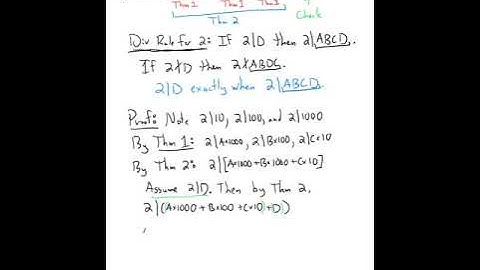 Thm 1 Thm 1 Thm 1 ↑
Thm 2 Check
Div Rule for 2: If 2|D then 2|ABCD.
If 2∤D then 2∤ABDC.
2|D exactly when 2|ABCD.
Proof: Note 2|10, 2|100, and 2|1000
By Thm 1: 2|A×1000, 2|B×100, 2|C×10
By Thm 2: 2|[A×1000+B×100+C×10]
Assume 2|D. Then by Thm 2,
2|(A×1000+B×100+C×10+D)